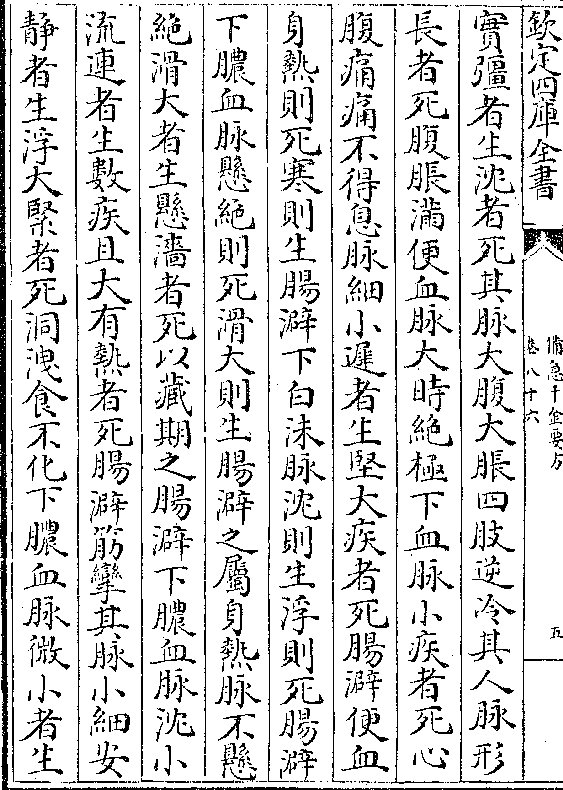 欽定四庫全書
備急千金要方
卷八十六
五
實彊者生沈者死其脉大腹大脹四肢逆冷其人脉形
長者死腹脹滿便血脉大時絶極下血脉小疾者死心
腹痛痛不得息脉細小遲者生堅大疾者死腸澼便血
身熱則死寒則生腸澼下白沫脉沈則生浮則死腸澼
下膿血脉懸絶則死滑大則生腸澼之屬身熱脉不懸
絶滑大者生懸濇者死以藏期之腸澼下膿血脉沈小
流連者生數疾且大有熱者死腸澼筋攣其脉小細安
静者生浮大緊者死洞洩食不化下膿血脉微小者生